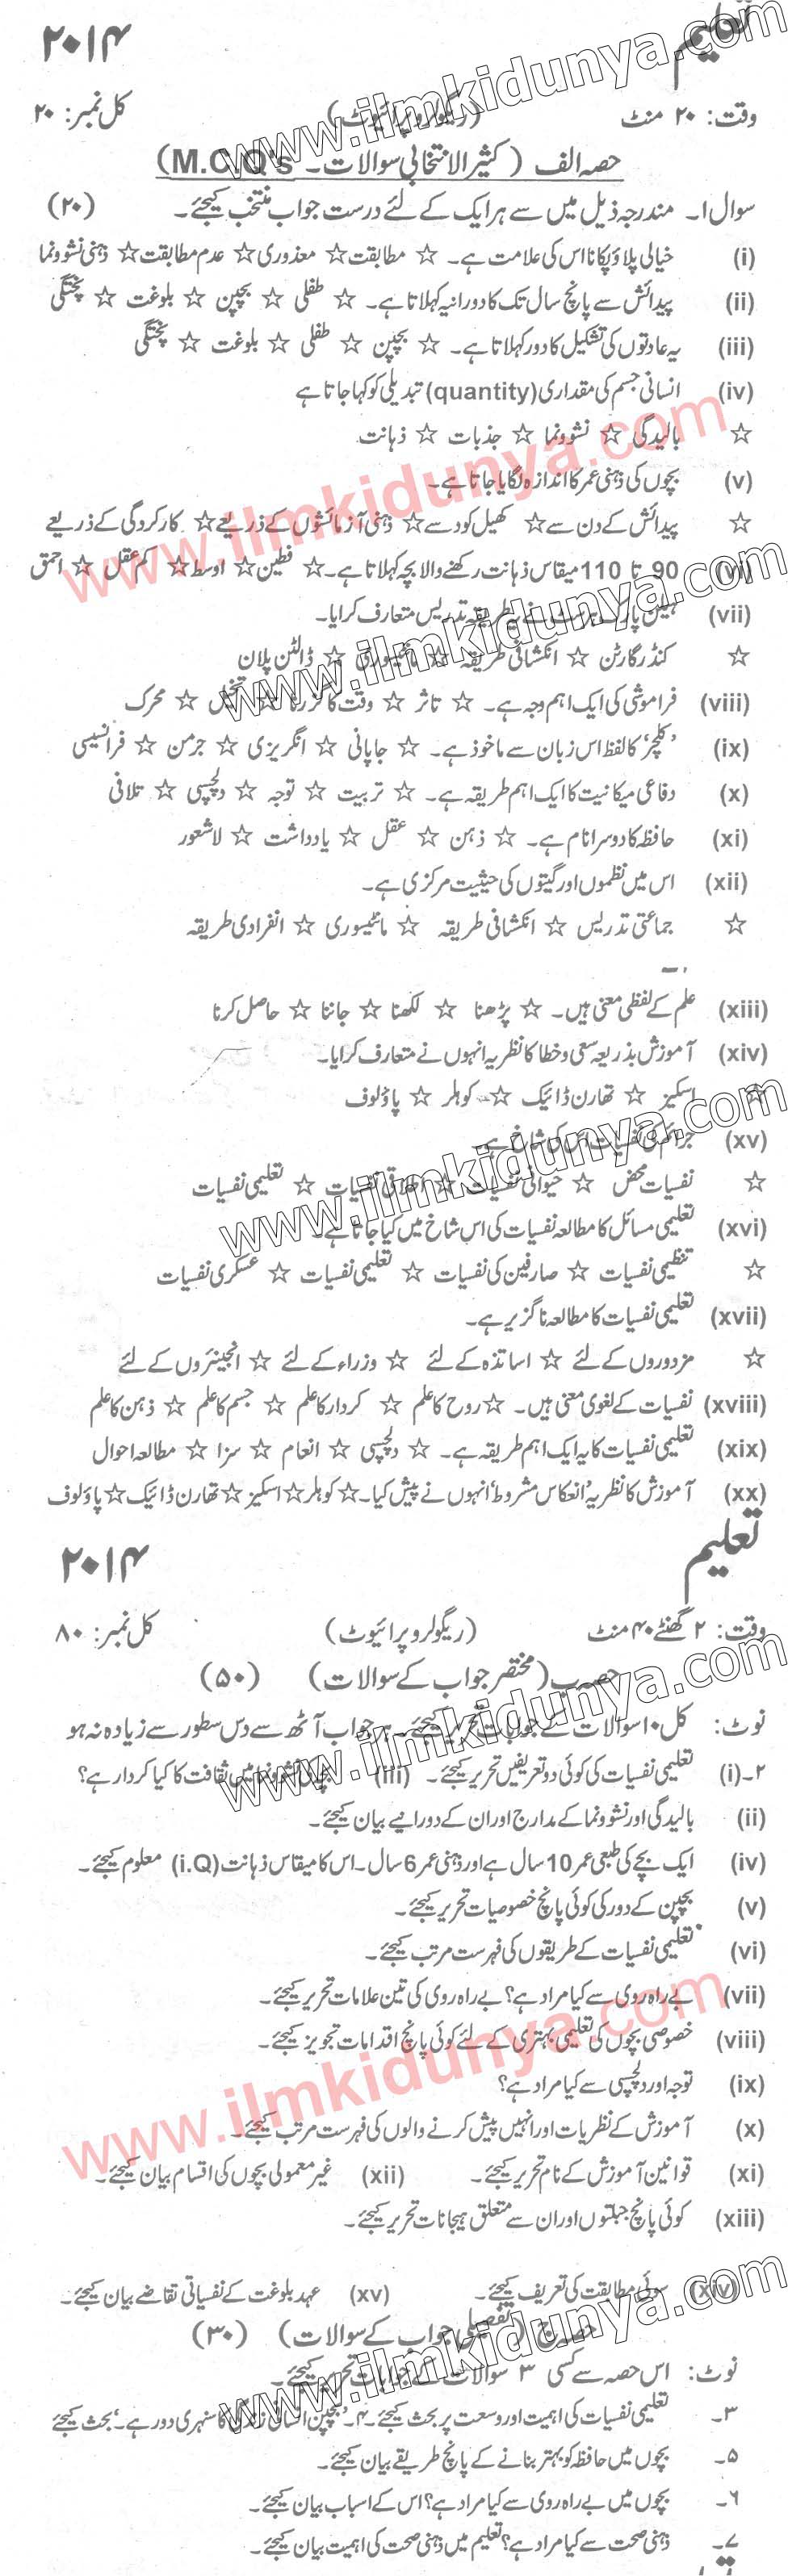 تعلیم ۲۰۱۴
وقت: ۲۰ منٹ (ریگولر و پرائیوٹ) کل نمبر: ۲۰
حصہ الف (کثیر الانتخابی سوالات ۔ M.C.Q's)
سوال ۱۔ مندرجہ ذیل میں سے ہر ایک کے لئے درست جواب منتخب کیجئے۔ (۲۰)
(i) خیالی پلاؤ پکانا اس کی علامت ہے۔ ☆ مطابقت ☆ معذوری ☆ عدم مطابقت ☆ ذہنی نشوونما
(ii) پیدائش سے پانچ سال تک کا دورانیہ کہلاتا ہے۔ ☆ طفلی ☆ بچپن ☆ بلوغت ☆ پختگی
(iii) یہ عادتوں کی تشکیل کا دور کہلاتا ہے۔ ☆ بچپن ☆ طفلی ☆ بلوغت ☆ پختگی
(iv) انسانی جسم کی مقداری (quantity) تبدیلی کو کہا جاتا ہے
☆ بالیدگی ☆ نشوونما ☆ جذبات ☆ ذہانت
(v) بچوں کی ذہنی عمر کا اندازہ لگایا جاتا ہے۔
☆ پیدائش کے دن سے ☆ کھیل کود سے ☆ ذہنی آزمائشوں کے ذریعے ☆ کارکردگی کے ذریعے
(vi) 90 تا 110 مقیاس ذہانت رکھنے والا بچہ کہلاتا ہے۔ ☆ فطین ☆ اوسط ☆ کم عقل ☆ احمق
(vii) ہیلن پارک ہرسٹ نے یہ طریقہ تدریس متعارف کرایا۔
☆ کنڈرگارٹن ☆ انکشافی طریقہ ☆ مانٹیسوری ☆ ڈالٹن پلان
(viii) فراموشی کی ایک اہم وجہ ہے۔ ☆ تاثر ☆ وقت کا گزرنا ☆ تخیل ☆ محرک
(ix) 'کلچر' کا لفظ اس زبان سے ماخوذ ہے۔ ☆ جاپانی ☆ انگریزی ☆ جرمن ☆ فرانسیسی
(x) دفاعی میکانیت کا ایک اہم طریقہ ہے۔ ☆ تربیت ☆ توجہ ☆ دلچسپی ☆ تلافی
(xi) حافظہ کا دوسرا نام ہے۔ ☆ ذہن ☆ عقل ☆ یادداشت ☆ لاشعور
(xii) اس میں نظموں اور گیتوں کی حیثیت مرکزی ہے۔
☆ جماعتی تدریس ☆ انکشافی طریقہ ☆ مانٹیسوری ☆ انفرادی طریقہ
(xiii) علم کے لفظی معنی ہیں۔ ☆ پڑھنا ☆ لکھنا ☆ جاننا ☆ حاصل کرنا
(xiv) آموزش بذریعہ سعی و خطا کا نظریہ انہوں نے متعارف کرایا۔
☆ اسکینر ☆ تھارن ڈائیک ☆ کوہلر ☆ پاؤلوف
(xv) جرائم کی نفسیات اس کی شاخ ہے۔
☆ نفسیات محض ☆ حیوانی نفسیات ☆ اطلاقی نفسیات ☆ تعلیمی نفسیات
(xvi) تعلیمی مسائل کا مطالعہ نفسیات کی اس شاخ میں کیا جاتا ہے۔
☆ تنظیمی نفسیات ☆ صارفین کی نفسیات ☆ تعلیمی نفسیات ☆ عسکری نفسیات
(xvii) تعلیمی نفسیات کا مطالعہ ناگزیر ہے۔
☆ مزدوروں کے لئے ☆ اساتذہ کے لئے ☆ وزراء کے لئے ☆ انجینئروں کے لئے
(xviii) نفسیات کے لغوی معنی ہیں۔ ☆ روح کا علم ☆ کردار کا علم ☆ جسم کا علم ☆ ذہن کا علم
(xix) تعلیمی نفسیات کا یہ ایک اہم طریقہ ہے۔ ☆ دلچسپی ☆ انعام ☆ سزا ☆ مطالعہ احوال
(xx) آموزش کا نظریہ 'انعکاس مشروط' انہوں نے پیش کیا۔ ☆ کوہلر ☆ اسکینر ☆ تھارن ڈائیک ☆ پاؤلوف
تعلیم ۲۰۱۴
وقت: ۲ گھنٹے ۴۰ منٹ (ریگولر و پرائیوٹ) کل نمبر: ۸۰
حصہ ب (مختصر جواب کے سوالات) (۵۰)
نوٹ: کل ۱۰ سوالات کے جوابات تحریر کیجئے۔ ہر جواب آٹھ سے دس سطور سے زیادہ نہ ہو
۲۔(i) تعلیمی نفسیات کی کوئی دو تعریفیں تحریر کیجئے۔ (iii) بچے کی نشوونما میں ثقافت کا کیا کردار ہے؟
(ii) بالیدگی اور نشوونما کے مدارج اور ان کے دورانیے بیان کیجئے۔
(iv) ایک بچے کی طبعی عمر 10 سال ہے اور ذہنی عمر 6 سال۔ اس کا مقیاس ذہانت (i.Q) معلوم کیجئے۔
(v) بچپن کے دور کی کوئی پانچ خصوصیات تحریر کیجئے۔
(vi) تعلیمی نفسیات کے طریقوں کی فہرست مرتب کیجئے۔
(vii) بے راہ روی سے کیا مراد ہے؟ بے راہ روی کی تین علامات تحریر کیجئے۔
(viii) خصوصی بچوں کی تعلیمی بہتری کے لئے کوئی پانچ اقدامات تجویز کیجئے۔
(ix) توجہ اور دلچسپی سے کیا مراد ہے؟
(x) آموزش کے نظریات اور انہیں پیش کرنے والوں کی فہرست مرتب کیجئے۔
(xi) قوانین آموزش کے نام تحریر کیجئے۔ (xii) غیر معمولی بچوں کی اقسام بیان کیجئے۔
(xiii) کوئی پانچ جبلتوں اور ان سے متعلق ہیجانات تحریر کیجئے۔
(xiv) سوئی مطابقت کی تعریف کیجئے۔ (xv) عہد بلوغت کے نفسیاتی تقاضے بیان کیجئے۔
حصہ ج (تفصیلی جواب کے سوالات) (۳۰)
نوٹ: اس حصہ سے کسی ۳ سوالات کے جوابات تحریر کیجئے۔
۳۔ تعلیمی نفسیات کی اہمیت اور وسعت پر بحث کیجئے۔ ۴۔ 'بچپن انسانی زندگی کا سنہری دور ہے۔' بحث کیجئے
۵۔ بچوں میں حافظہ کو بہتر بنانے کے پانچ طریقے بیان کیجئے۔
۶۔ بچوں میں بے راہ روی سے کیا مراد ہے؟ اس کے اسباب بیان کیجئے۔
۷۔ ذہنی صحت سے کیا مراد ہے؟ تعلیم میں ذہنی صحت کی اہمیت بیان کیجئے۔
www.ilmkidunya.com
www.ilmkidunya.com
www.ilmkidunya.com
www.ilmkidunya.com
www.ilmkidunya.com
www.ilmkidunya.com
www.ilmkidunya.com